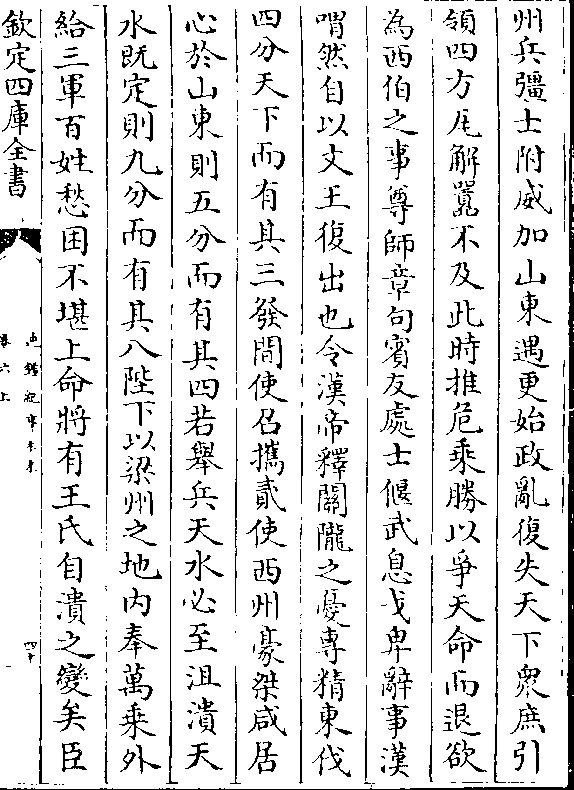 州兵彊士附威加山東遇更始政亂復失天下衆庶引
領四方瓦解囂不及此時推危乗勝以爭天命而退欲
為西伯之事尊師章句賓友處士偃武息戈卑辭事漢
喟然自以文王復出也令漢帝釋關隴之憂專精東伐
四分天下而有其三發間使召攜貳使西州豪桀咸居
心於山東則五分而有其四若舉兵天水必至沮潰天
水既定則九分而有其八陛下以梁州之地内奉萬乗外
給三軍百姓愁困不堪上命將有王氏自潰之變矣臣
欽定四庫全書
通鑑紀事本末
卷六上
四十